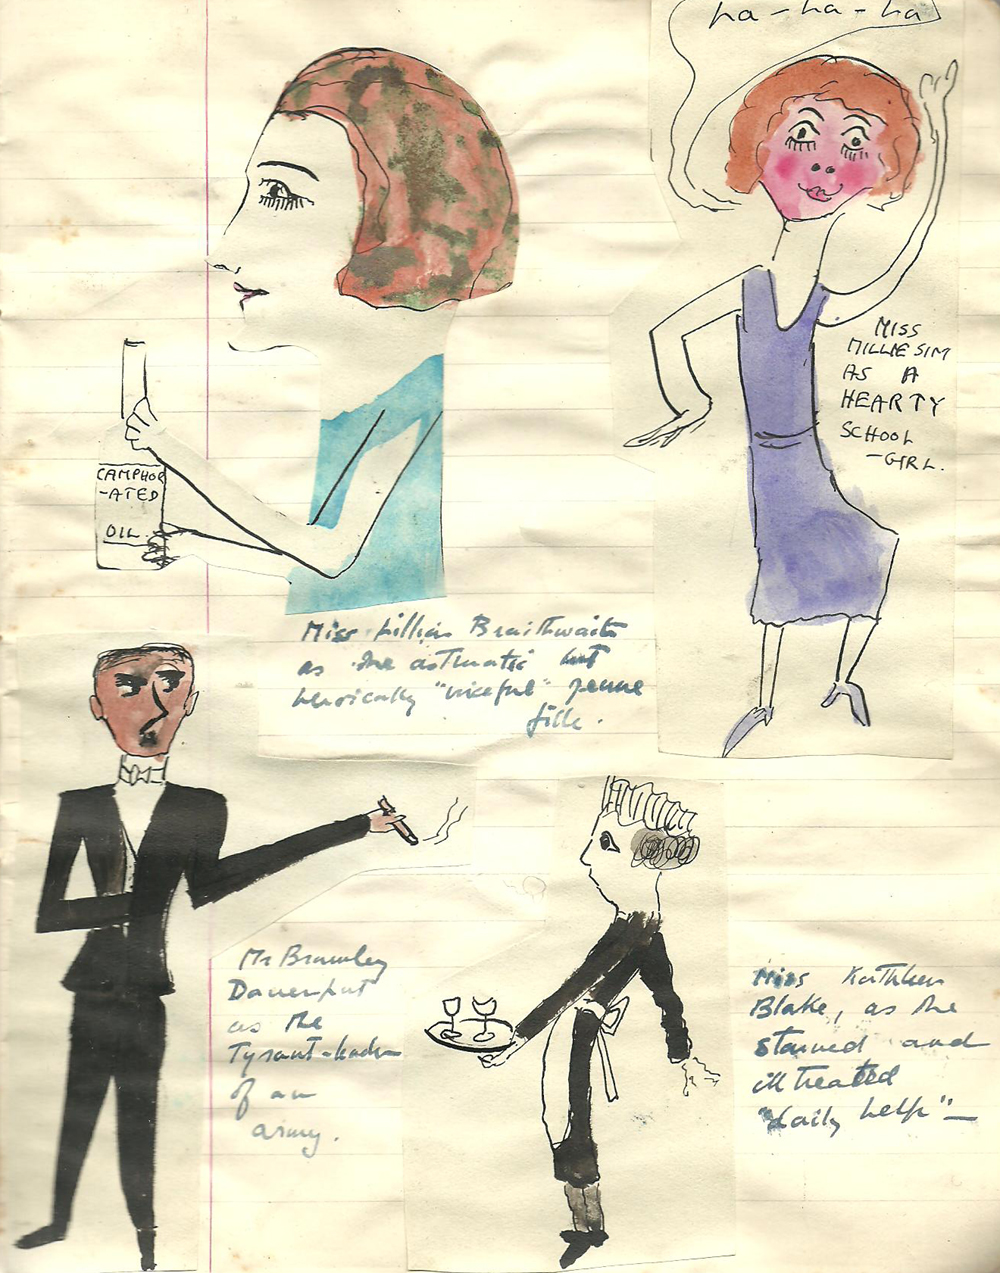 ha - ha - ha
MISS
MILLIE SIM
AS A
HEARTY
SCHOOL
-GIRL.
CAMPHOR
-ATED
OIL
Miss Lillian Braithwaite
as the astmatic but
heroically "niceful" jeune
fille.
Mr Bromley
Davenport
as the
Tyrant-leader
of an
army.
Miss Kathleen
Blake, as the
starved and
ill treated
"daily help"—